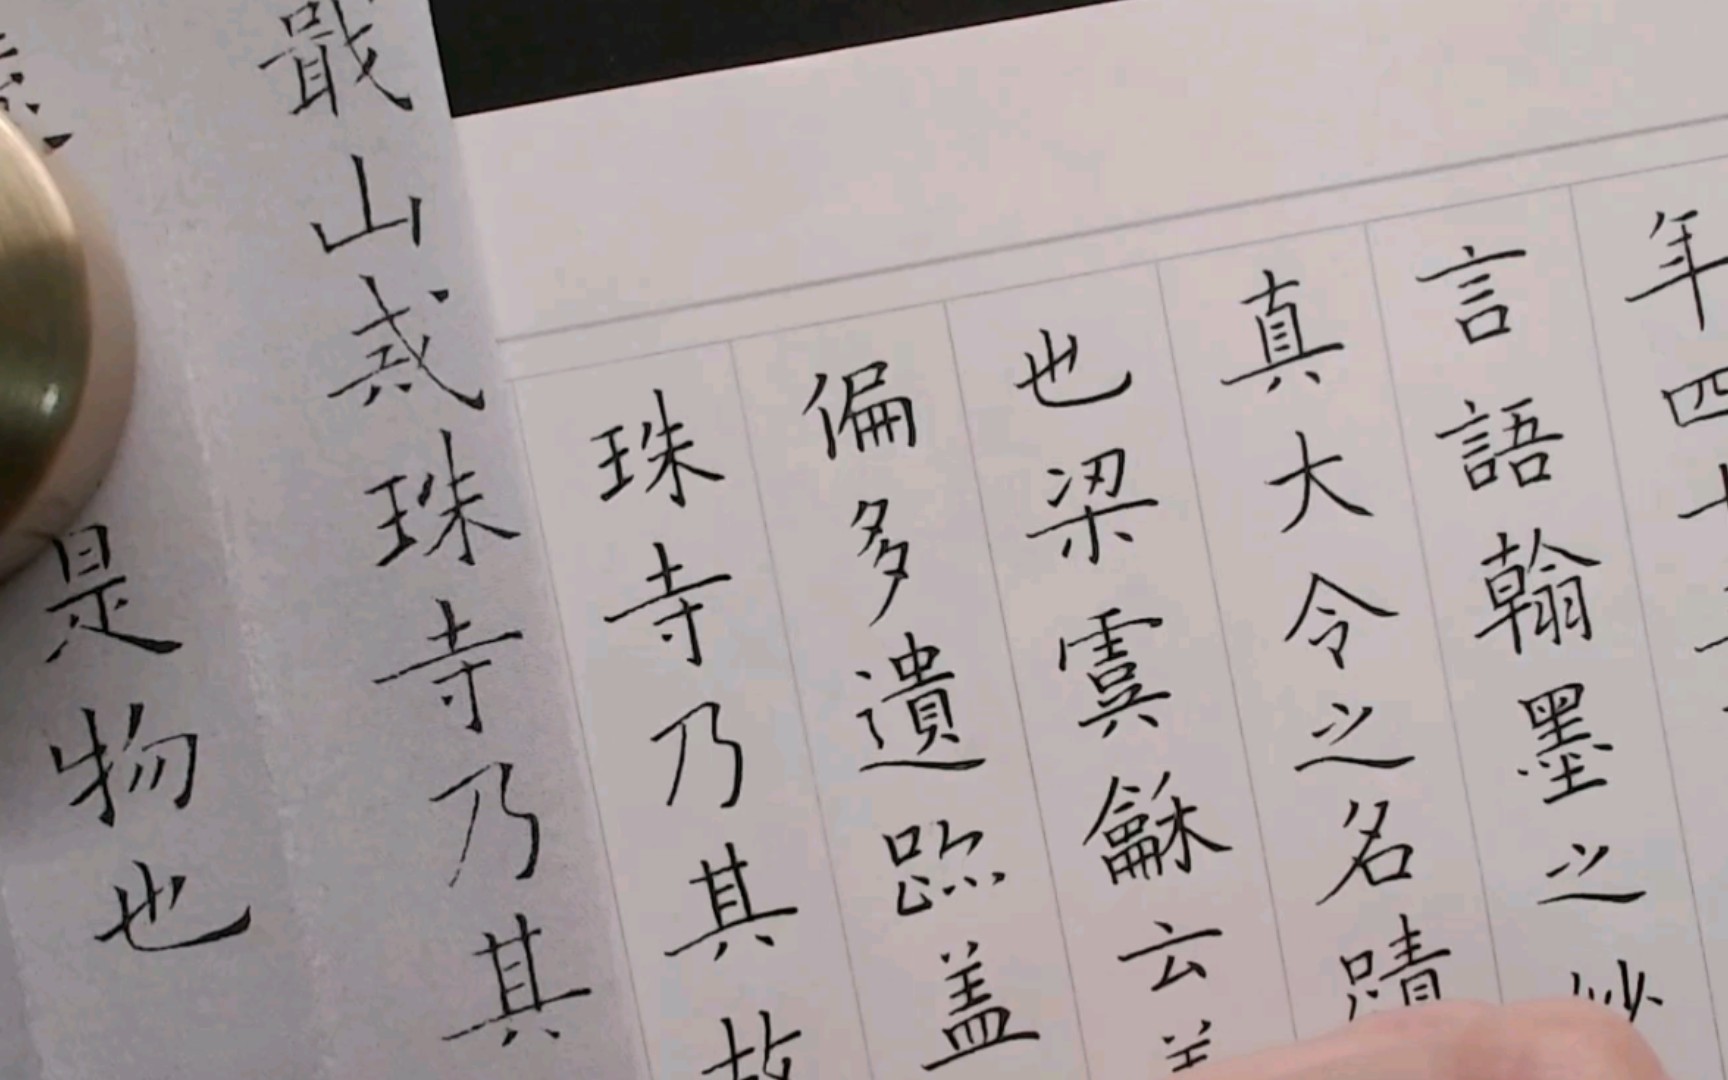 年四
言語翰墨之妙
真大令之名蹟
也梁虞龢云
偏多遺跡蓋
珠寺乃其故
山或珠寺乃其
是物也